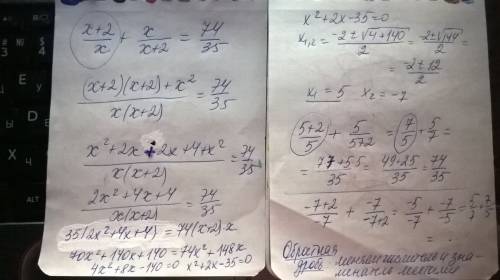 (x+2)/x + x/(x+2) = 74/35
((x+2)(x+2)+x²)/(x(x+2)) = 74/35
(x²+2x+2x+4+x²)/(x(x+2)) = 74/35
(2x²+4x+4)/(x(x+2)) = 74/35
35(2x²+4x+4) = 74(x+2)x
70x²+140x+140 = 74x²+148x
4x²+8x-140=0 x²+2x-35=0
x²+2x-35=0
x₁,₂ = (-2±√(4+140))/2 = (-2±√144)/2 =
= (-2±12)/2
x₁ = 5 x₂ = -7
(5+2)/5 + 5/(5+2) = 7/5 + 5/7 =
= (7·7+5·5)/35 = (49+25)/35 = 74/35
(-7+2)/-7 + -7/(-7+2) = -5/-7 + -7/-5 = 5/7 + 7/5
Обратная
дробь
меняем числ и зна-
менатель местами